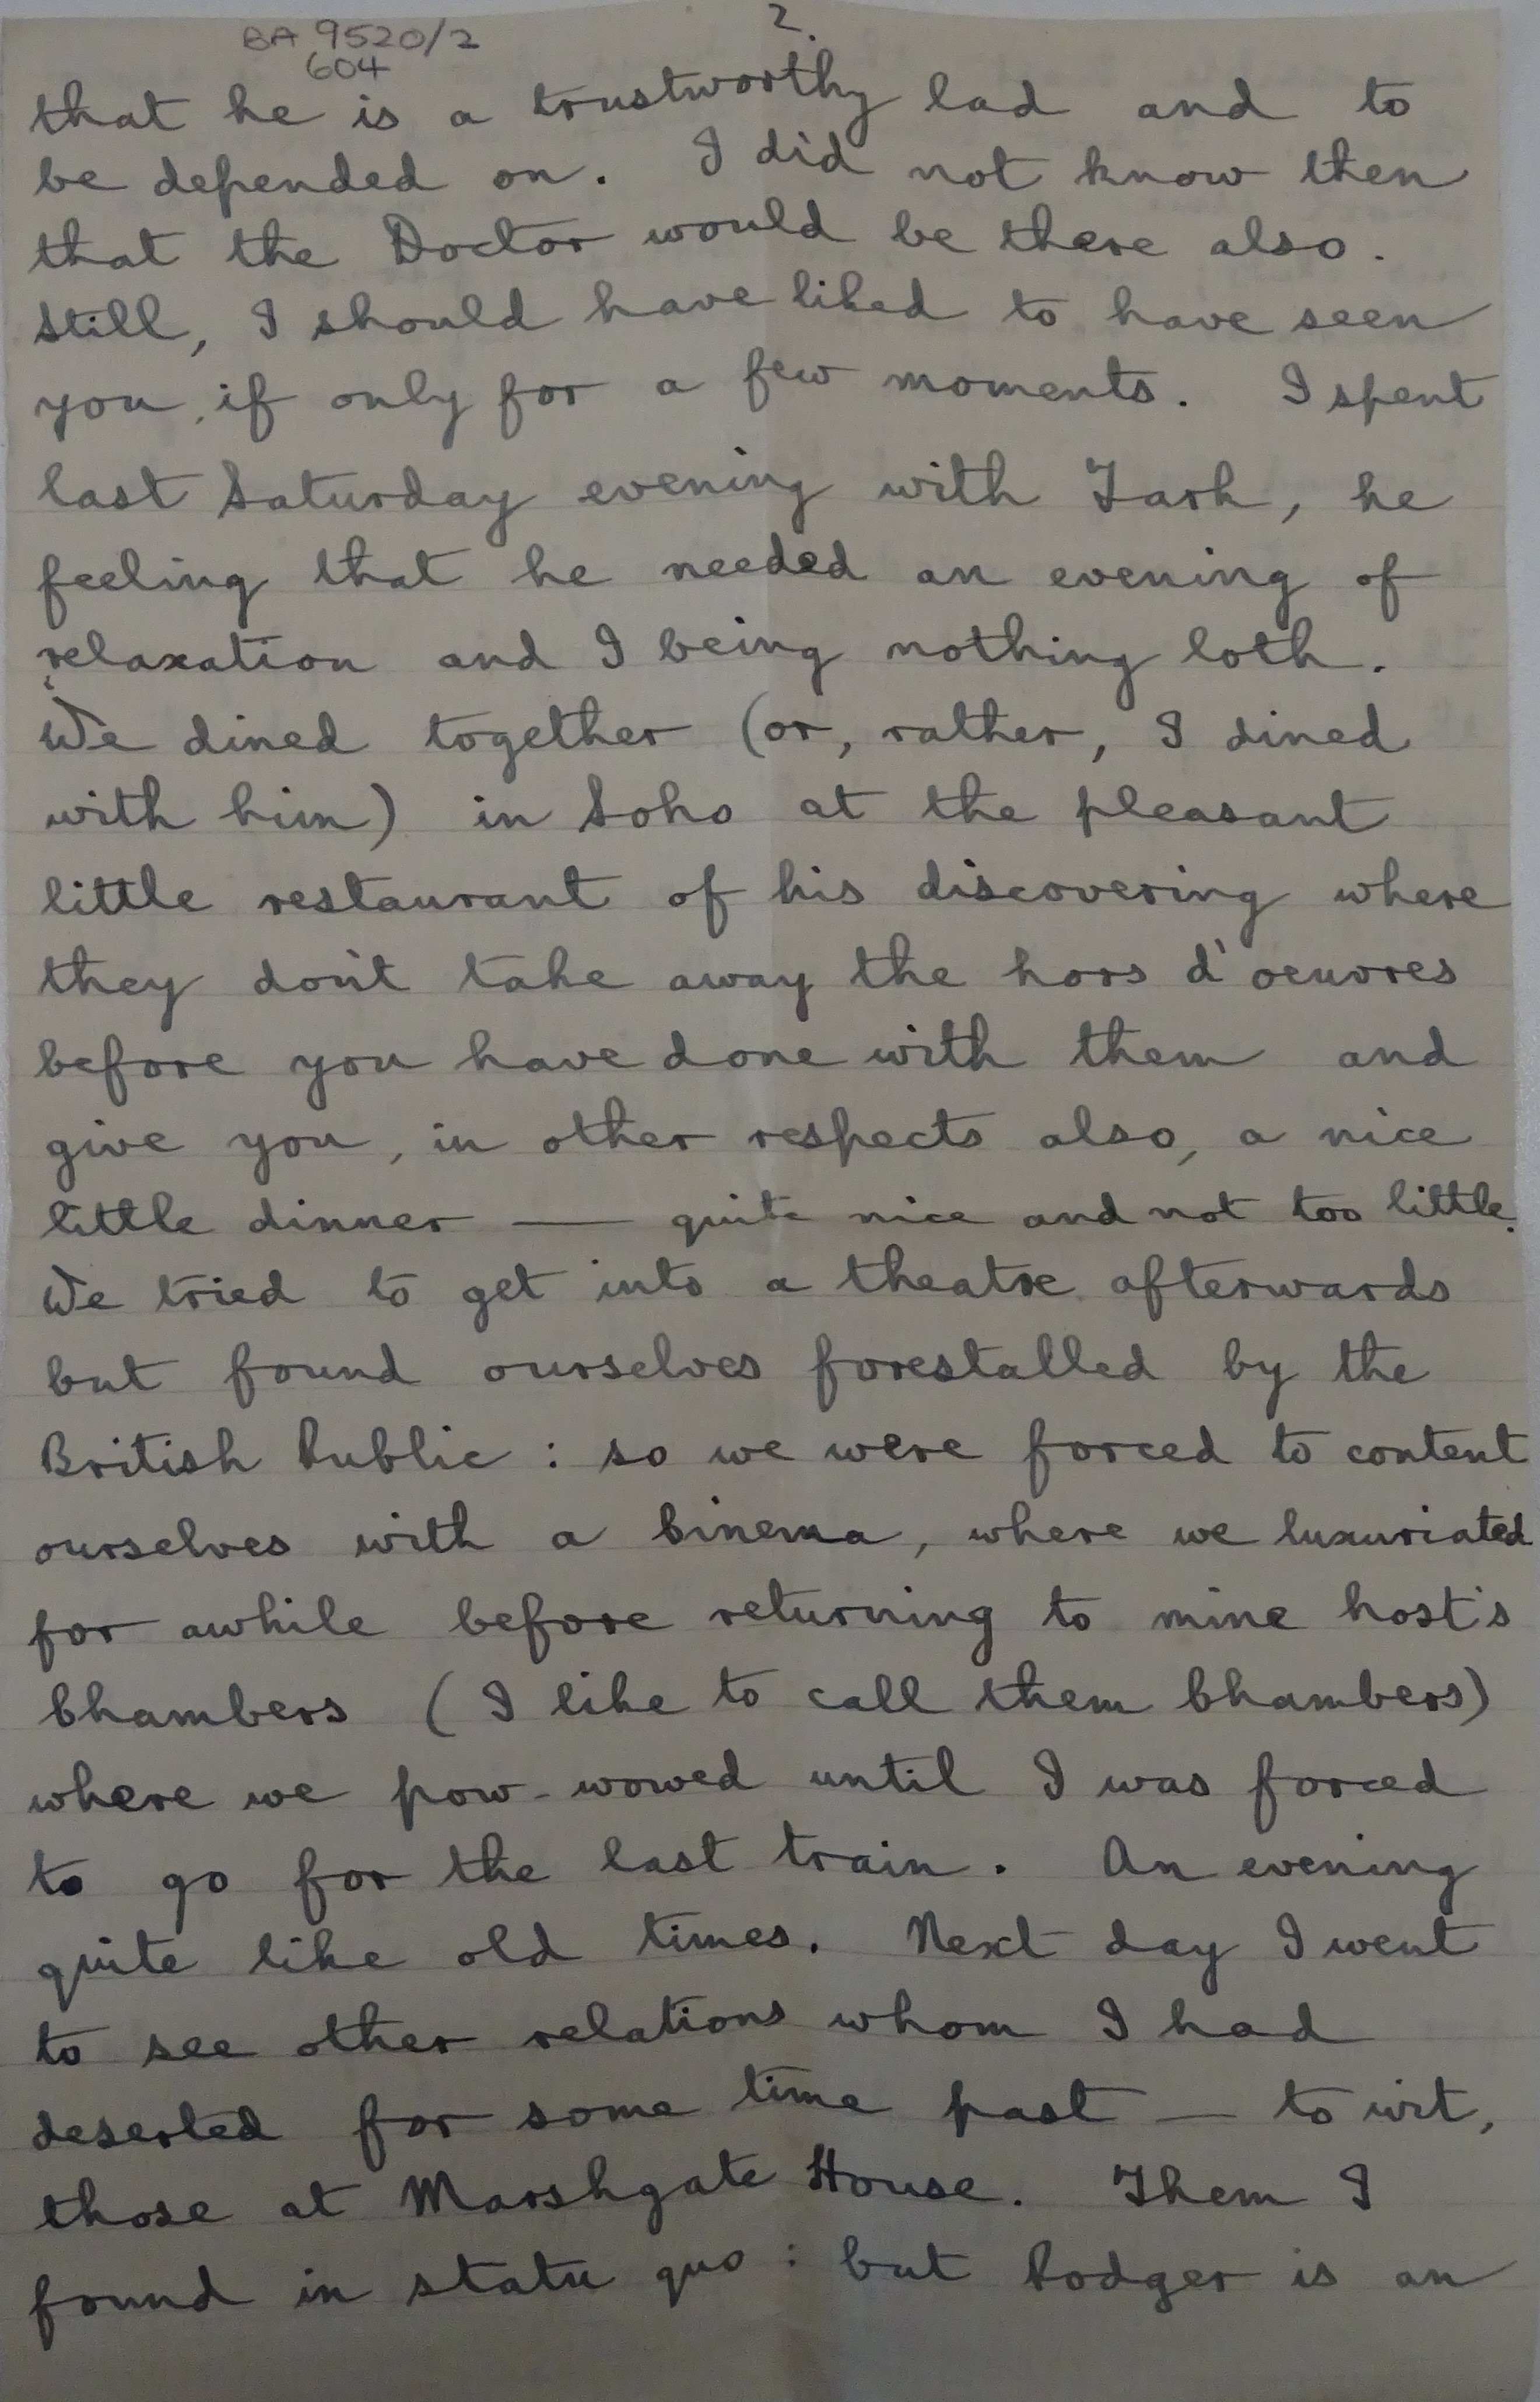 BA 9520/2
604
2.
that he is a trustworthy lad and to
be depended on. I did not know then
that the Doctor would be there also.
Still, I should have liked to have seen
you, if only for a few moments. I spent
last Saturday evening with Tark, he
feeling that he needed an evening of
relaxation and I being nothing loth.
We dined together (or, rather, I dined
with him) in Soho at the pleasant
little restaurant of his discovering where
they don't take away the hors d'oeuvres
before you have done with them and
give you, in other respects also, a nice
little dinner — quite nice and not too little.
We tried to get into a theatre afterwards
but found ourselves forestalled by the
British Public : so we were forced to content
ourselves with a Cinema, where we luxuriated
for awhile before returning to mine host's
Chambers (I like to call them Chambers)
where we pow-wowed until I was forced
to go for the last train. An evening
quite like old times. Next day I went
to see other relations whom I had
deserted for some time past — to wit,
those at Marshgate House. Them I
found in statu quo : but Podger is an